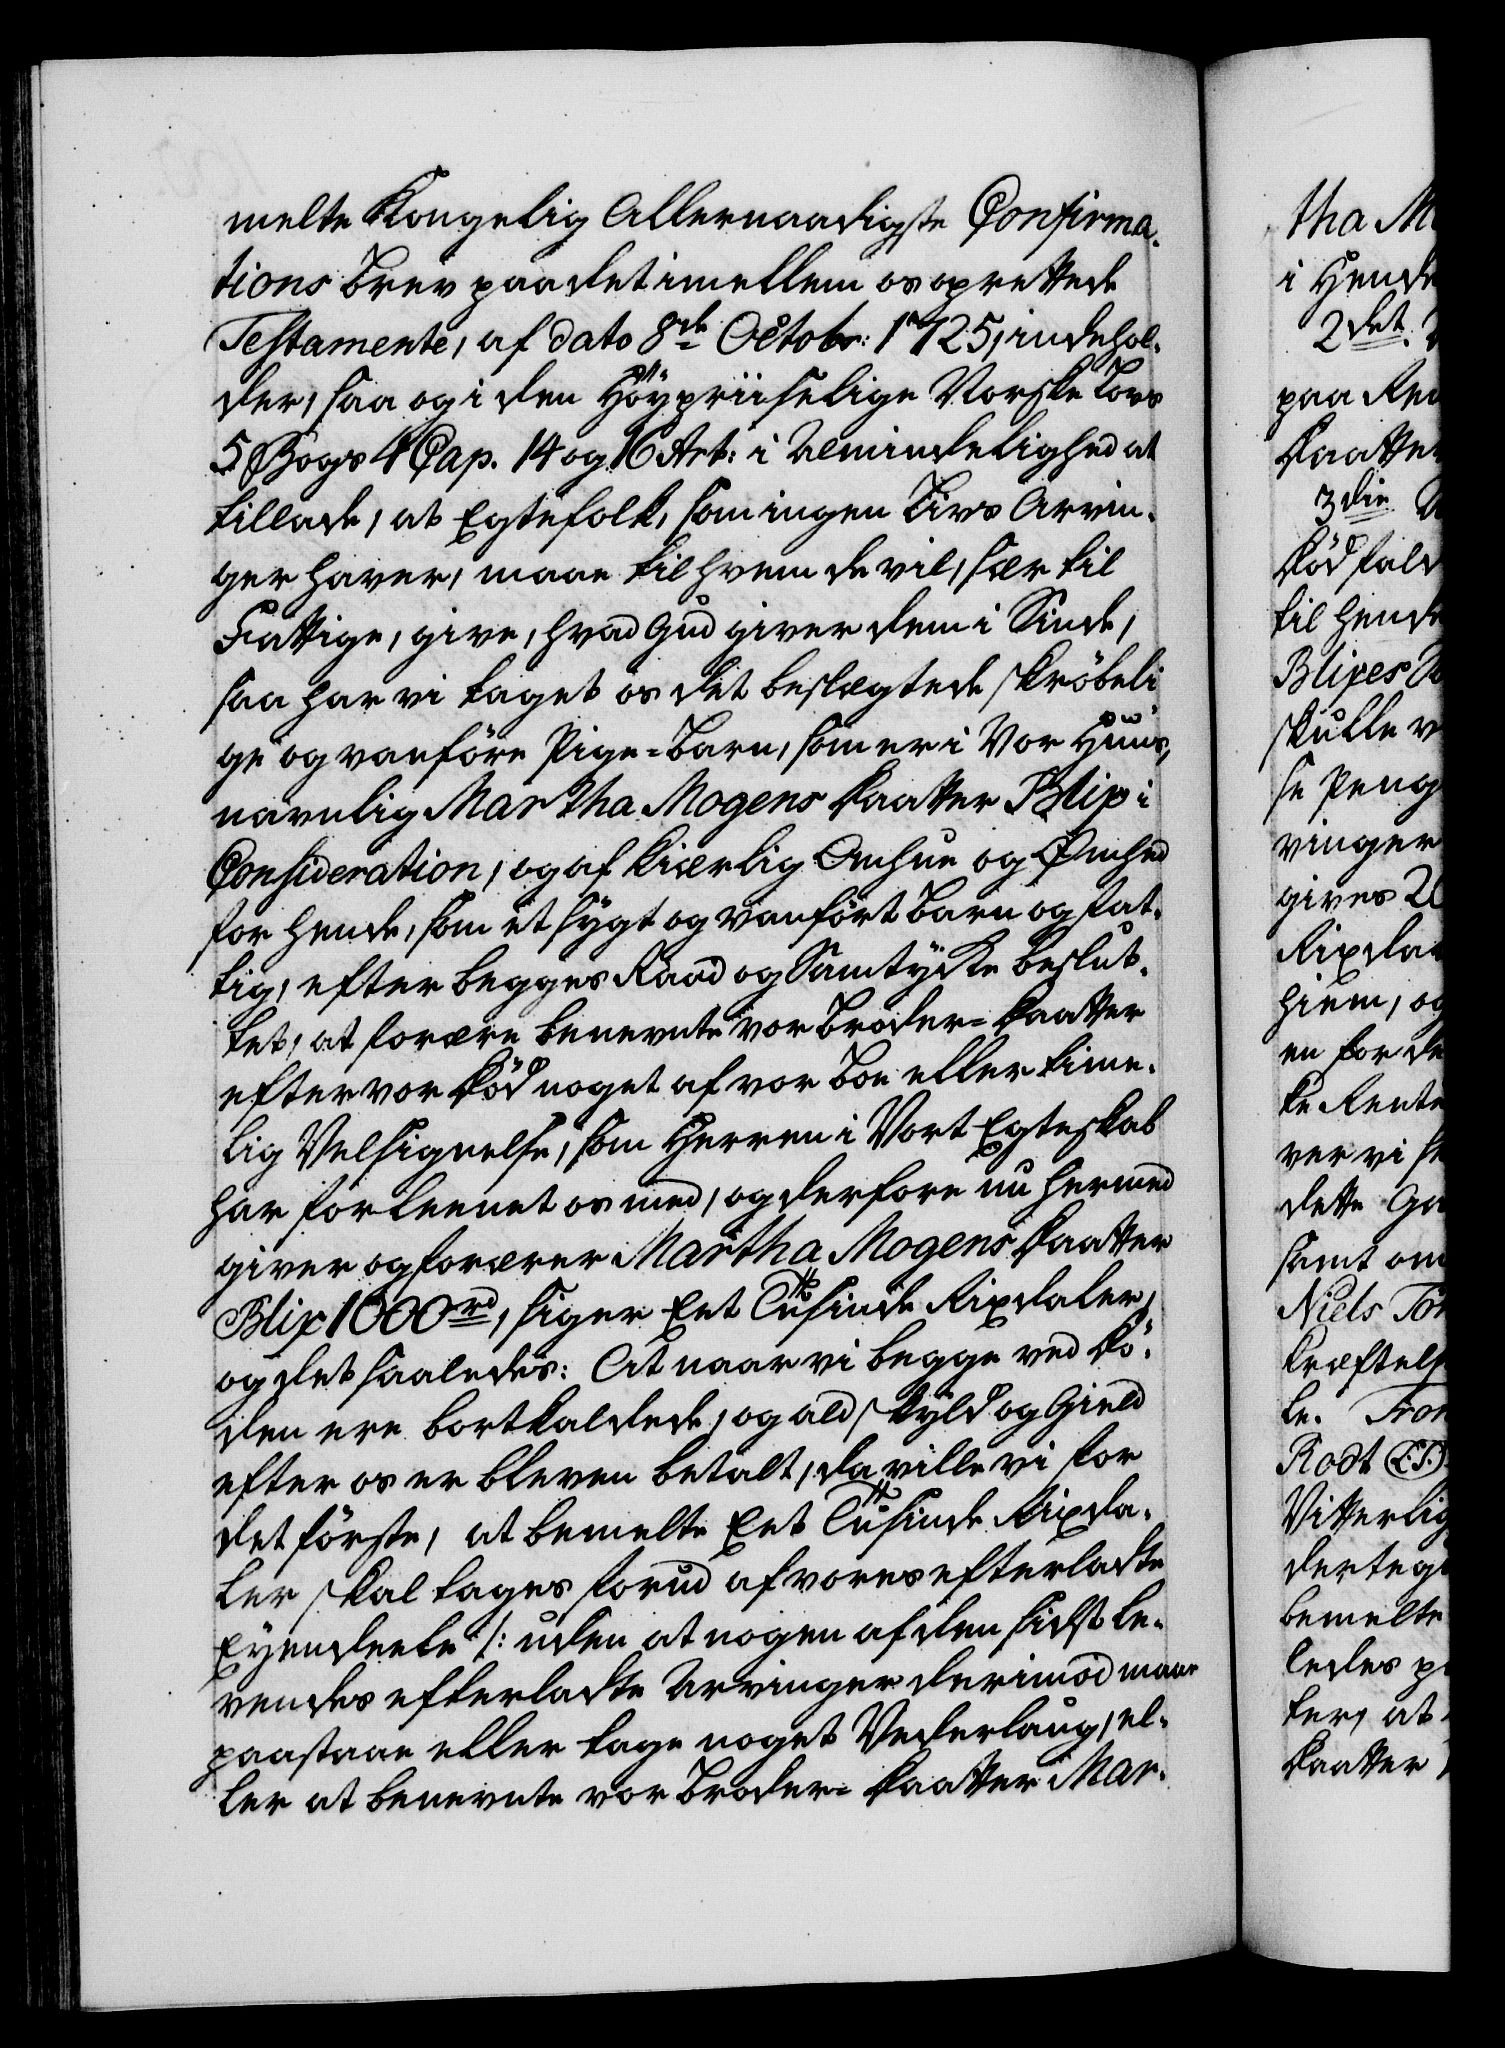 melte Kongelig Allernaadigste Confirma-
tions Brev paa det imellem os oprettede
Testamente, af dato 8de Octobr: 1725, indehol-
der, saa og i den Höypriiselige Norske Lovs
5 Bogs 4 Cap. 14 og 16 Art: i Almindelighed at
tillade, at Egtefolk, som ingen Livs Arvin-
ger haver, maae til hvem de vil, sær til
Fattige, give, hvad Gud giver dem i Sinde,
saa har vi taget os det beslegtede skröbeli
ge og vanföre Pige-Barn, som er i Vor Huus,
navnlig Martha Mogens Daatter Blix i
Consideration, og af kierlig Omhue og Ömhed
for hende, som et sygt og vanfört Barn og fat-
tig, efter begges Raad og Samtÿcke beslut-
tet, at forære benevnte vor Broder-Daatter
efter vor Död noget af vor Boe eller time-
lig Velsignelse, som Herren i Vort Egteskab
har forleenet os med, og derfore nu hermed
giver og forærer Martha Mogens Daatter
Blix 1000rd, siger Eet Tusinde Rixdaler,
og det saaledes: At naar vi begge ved Dö-
den ere bortkaldede, og ald skyld og Gield
efter os er bleven betalt, da ville vi for
det förste, at bemelte Eet Tusinde Rixda-
ler skal tages forud af vores efterladte
Eyendeele /: uden at nogen af den sidst le-
vendes efterladte Arvinger derimod maae
paastaae eller tage noget Vederlaug, el-
ler at benevnte vor Broder-Daatter Mar-
tha M
i Hende
2det.
paa Ren
Daatter
3die
Död fald
til hende
Blixes
skulle v
se Peng
vinger
gives
Rixdal
hiem, og
en for de
te Rente
ver vi se
dette Ga
samt om
Niels Tön
kræftels
le. Tron
Rodt (L.S.)
Vitterlig
dertegn
bemelte
ledes p
ter, at
Daatter